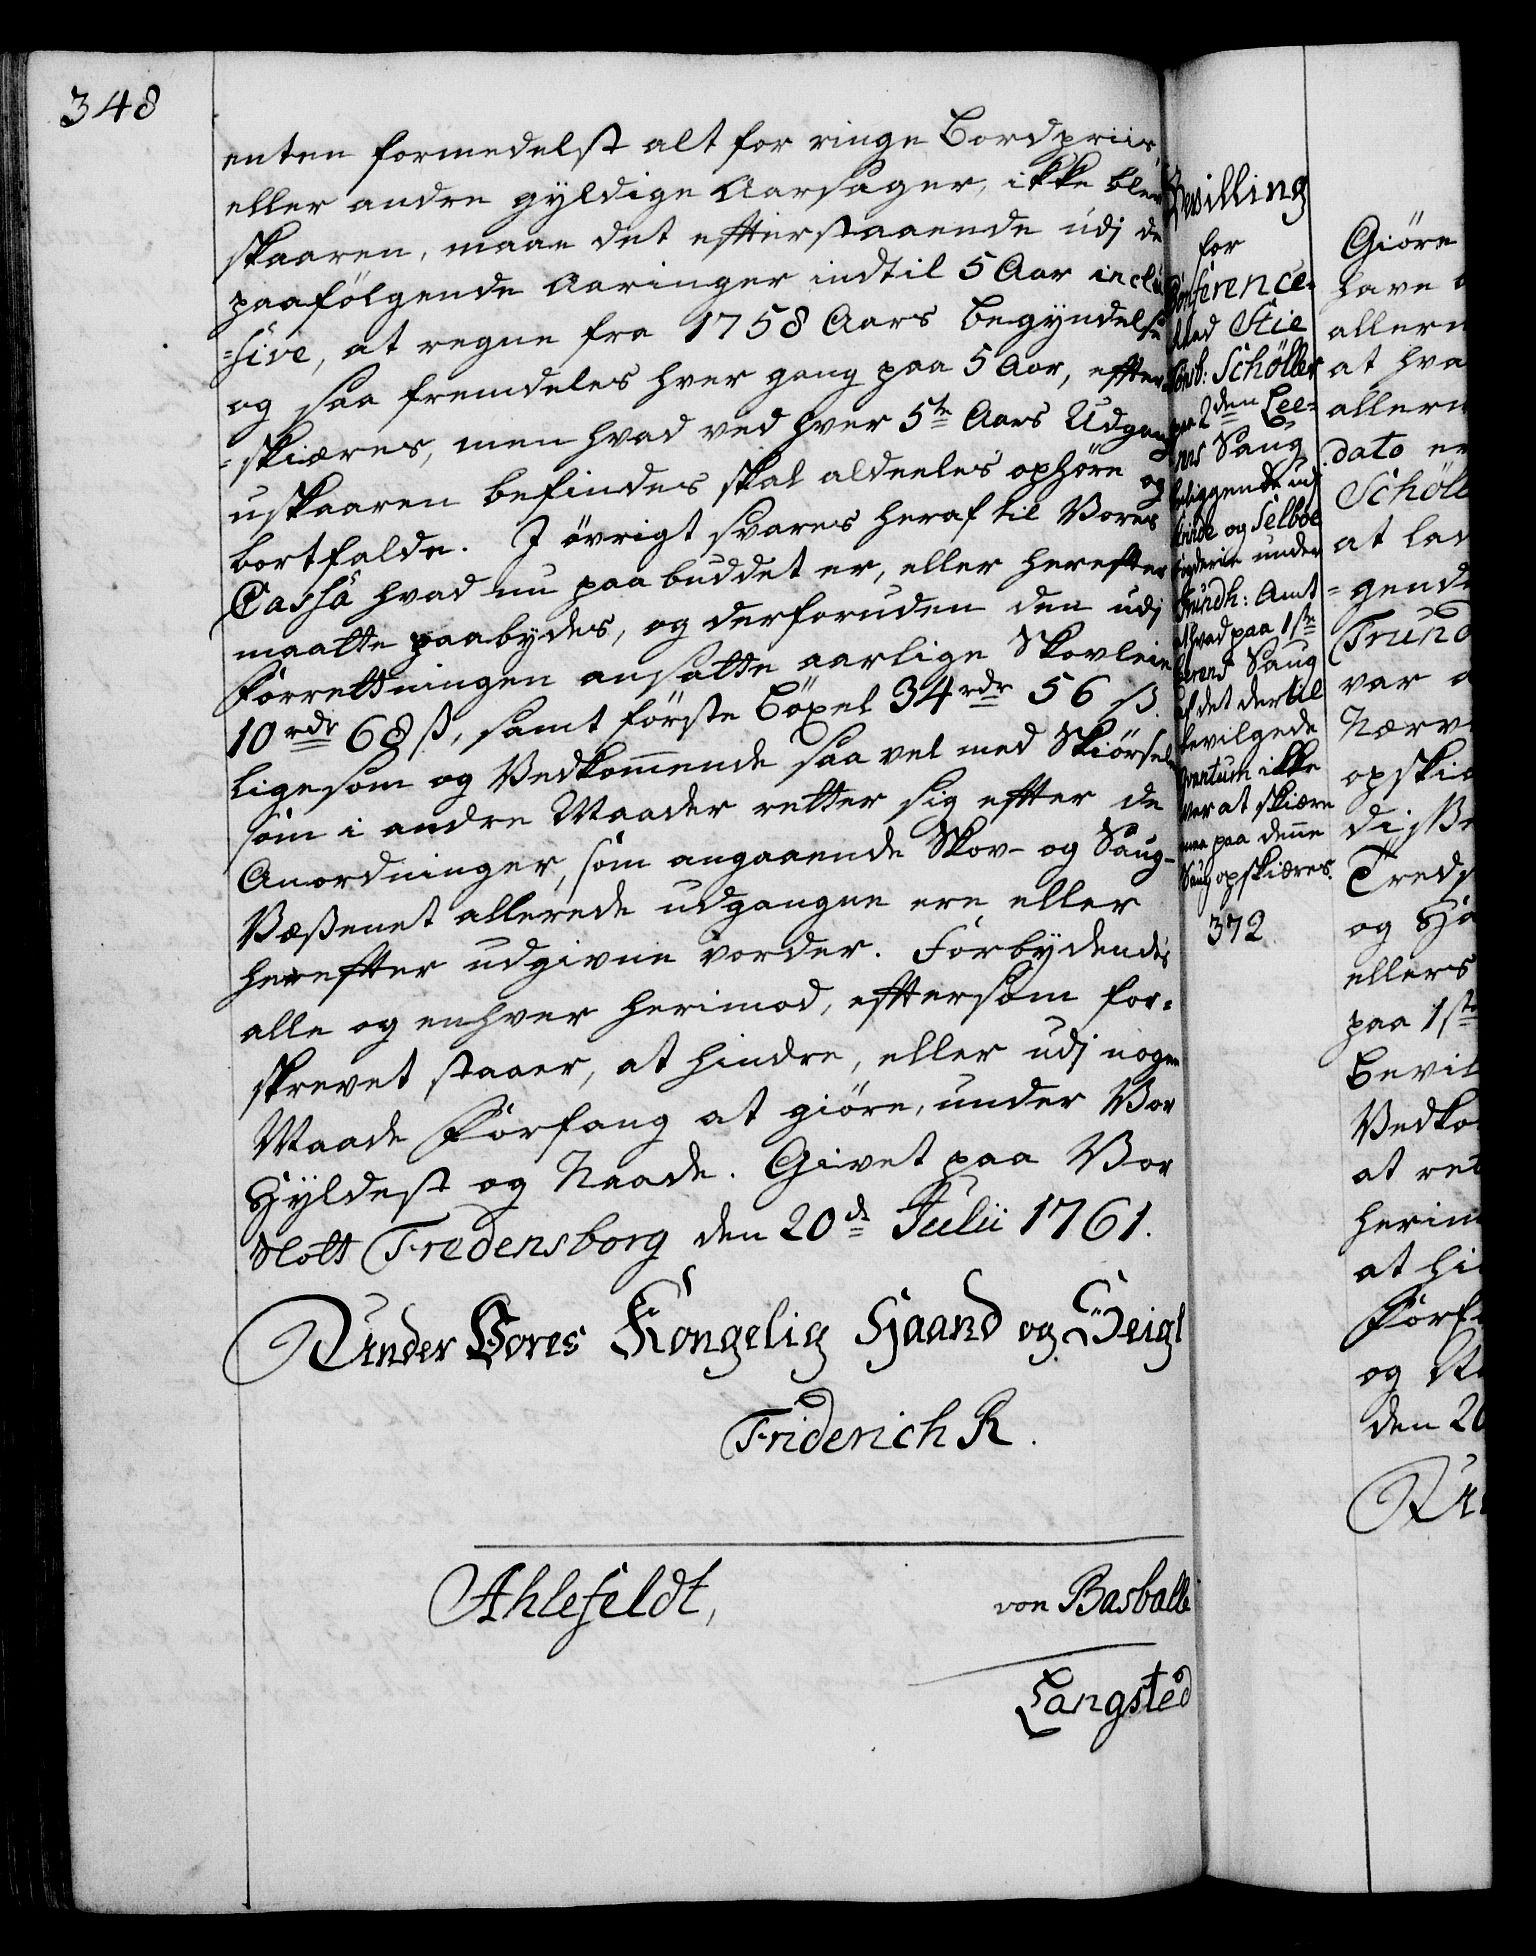 348
enten formedelst alt for ringe Bordpriis,
eller andre gyldige Aarsager, ikke blev
skaaren, maae det efterstaaende udj de
paafölgende Aaringer indtil 5 Aar inclu
=sive, at regne fra 1758 Aars Begyndelse
og saa fremdeles hver gang paa 5 Aar, efter
=skiæres, men hvad ved hver 5te Aars Udgang
uskaaren befindes skal aldeeles ophöre og
bortfalde. J övrigt svares heraf til Vores
Cassa hvad nu paabuddet er, eller herefter
maatte paabydes, og derforuden den udj
Forrettningen ansatte aarlige Skovleie
10 rdr 68 ß, samt förste Böxel 34 rdr 56 ß.
ligesom og Vedkom̄ende saa vel med Skiörselen
som i andre Maader retter sig efter de
Anordninger, som angaaende Skov- og Saug-
Væßenet allerede udgangne ere eller
herefter udgivne vorder. Forbydendes
alle og enhver herimod, eftersom for=
skrevet staaer, at hindre, eller udj nogen
Maade Forfang at giöre, under Vor
Hyldest og Naade. Givet paa Vor
Slott Fredensborg den 20de Julii 1761.
Under Vores Kongelig Haand og Seigl
Friderich R.
Ahlefeldt,
von Basballe
Langsted
Bevilling
for
Conference-
Raad Stie
Tonsb: Schöller
paa 2den Lee=
rens Saug
beliggende udj
Strinde og Selboe
Fogderie under
Trundh: Amt
at hvad paa 1ste
Lerens Saug
af det dertil
bevilgede
Qvantum ikke
var at skiære
maa paa denne
Saug opskiæres.
372
Giöre
have
allern
at hva
allern
dato er
Schöll
at lad
=gende
Trund
var
Nærv
opskiæ
diße
Treds
og
ellers
paa 1ste
Bevil
Vedko
at ret
herim
at hi
Forf
og
den 20
Un